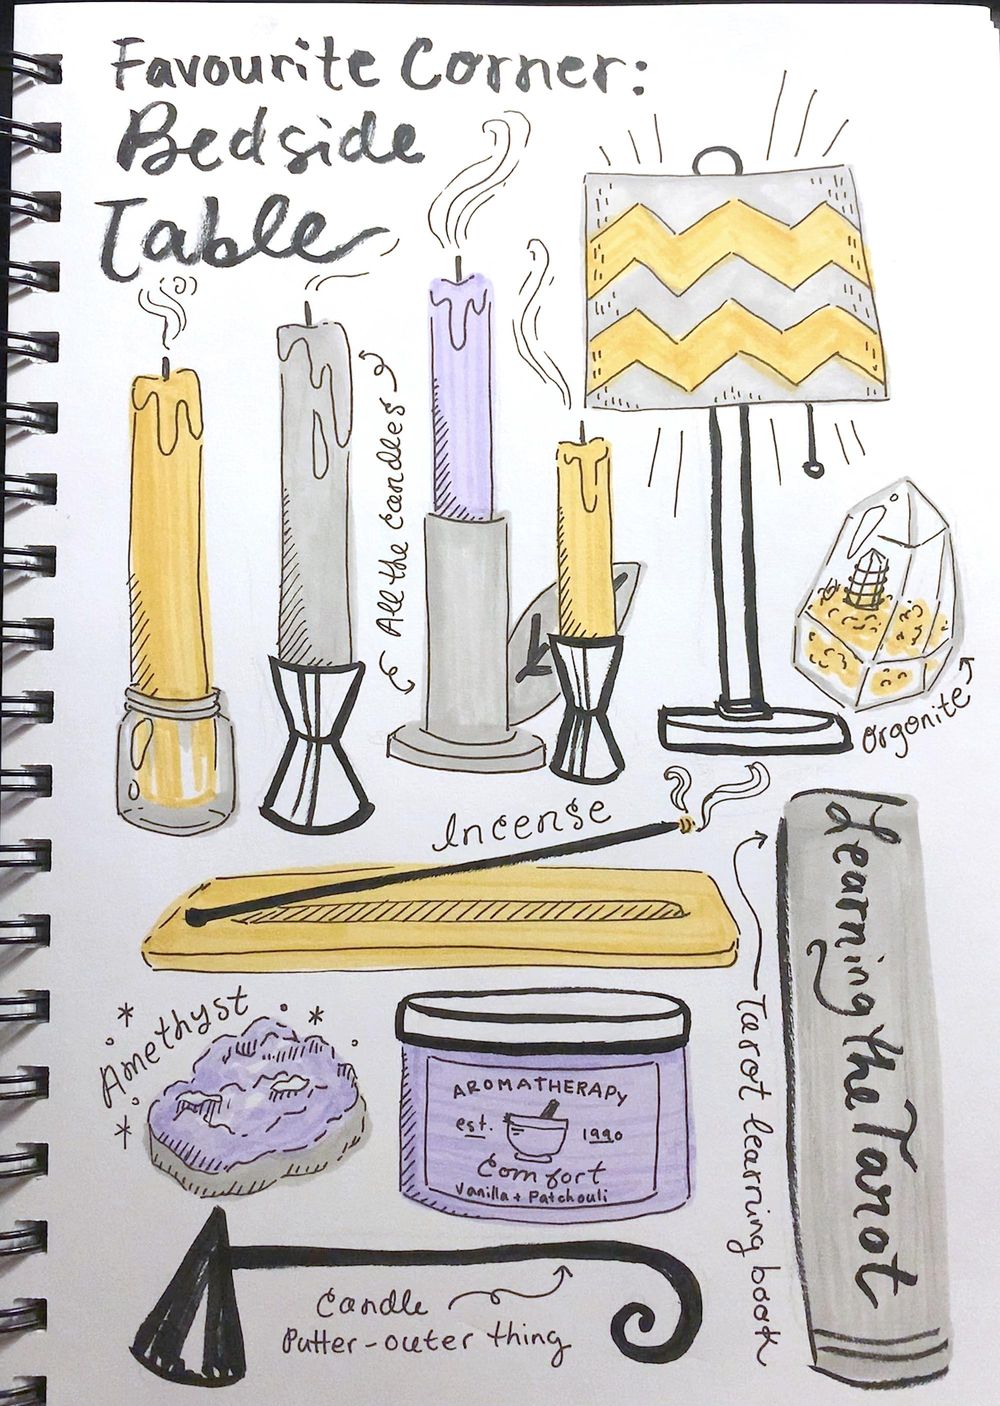 Favourite Corner:
Bedside
Table
All the Candles
Orgonite
Incense
Learning the Tarot
Tarot learning book
Amethyst
AROMATHERAPY
est. 1990
Comfort
Vanilla + Patchouli
Candle
Putter-outer thing